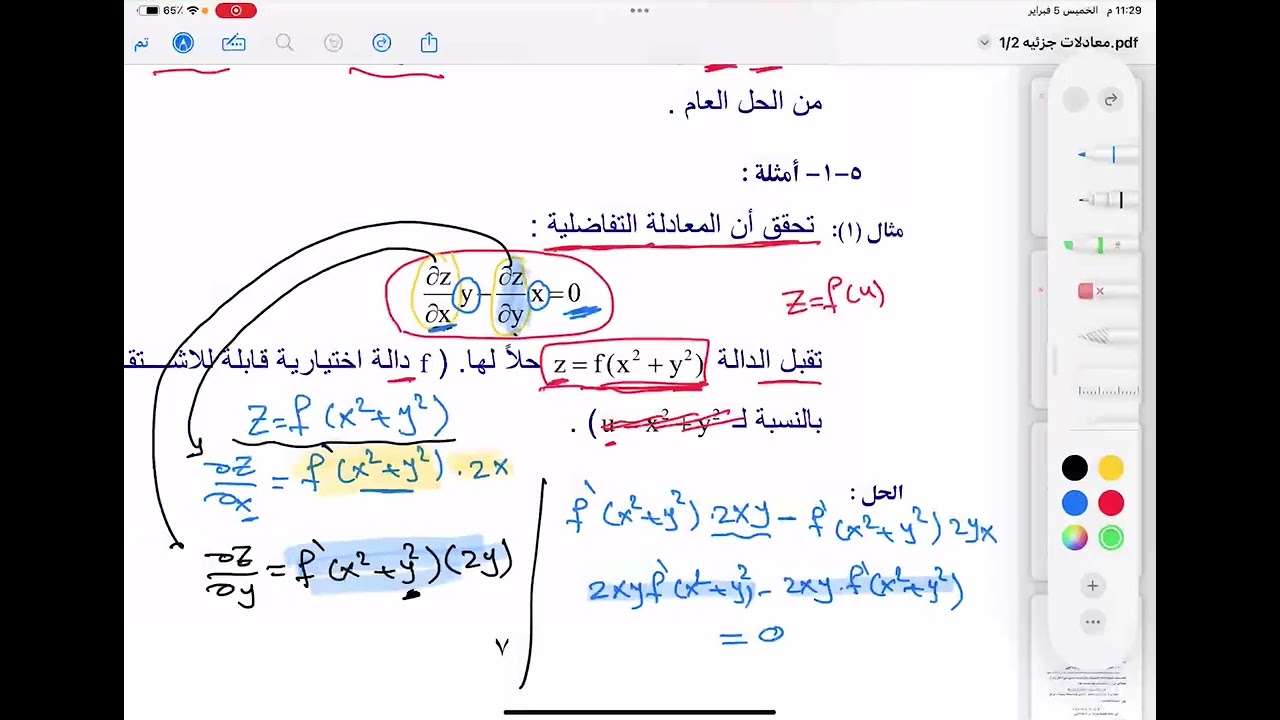 11:29 م الخميس 5 فبراير
65%
معادلات جزئيه 1/2.pdf
تم
من الحل العام .
٥-١- أمثلة :
مثال (١): تحقق أن المعادلة التفاضلية :
∂z/∂x y − ∂z/∂y x = 0
z = f(u)
تقبل الدالة z = f(x² + y²) حلاً لها. ( f دالة اختيارية قابلة للاشتقـ
بالنسبة لـ u x² + y² ) .
z = f(x² + y²)
∂z/∂x = f`(x² + y²) . 2x
∂z/∂y = f`(x² + y²)(2y)
الحل :
f`(x² + y²) . 2xy − f`(x² + y²) 2yx
2xy f`(x² + y²) − 2xy . f`(x² + y²)
= 0
٧